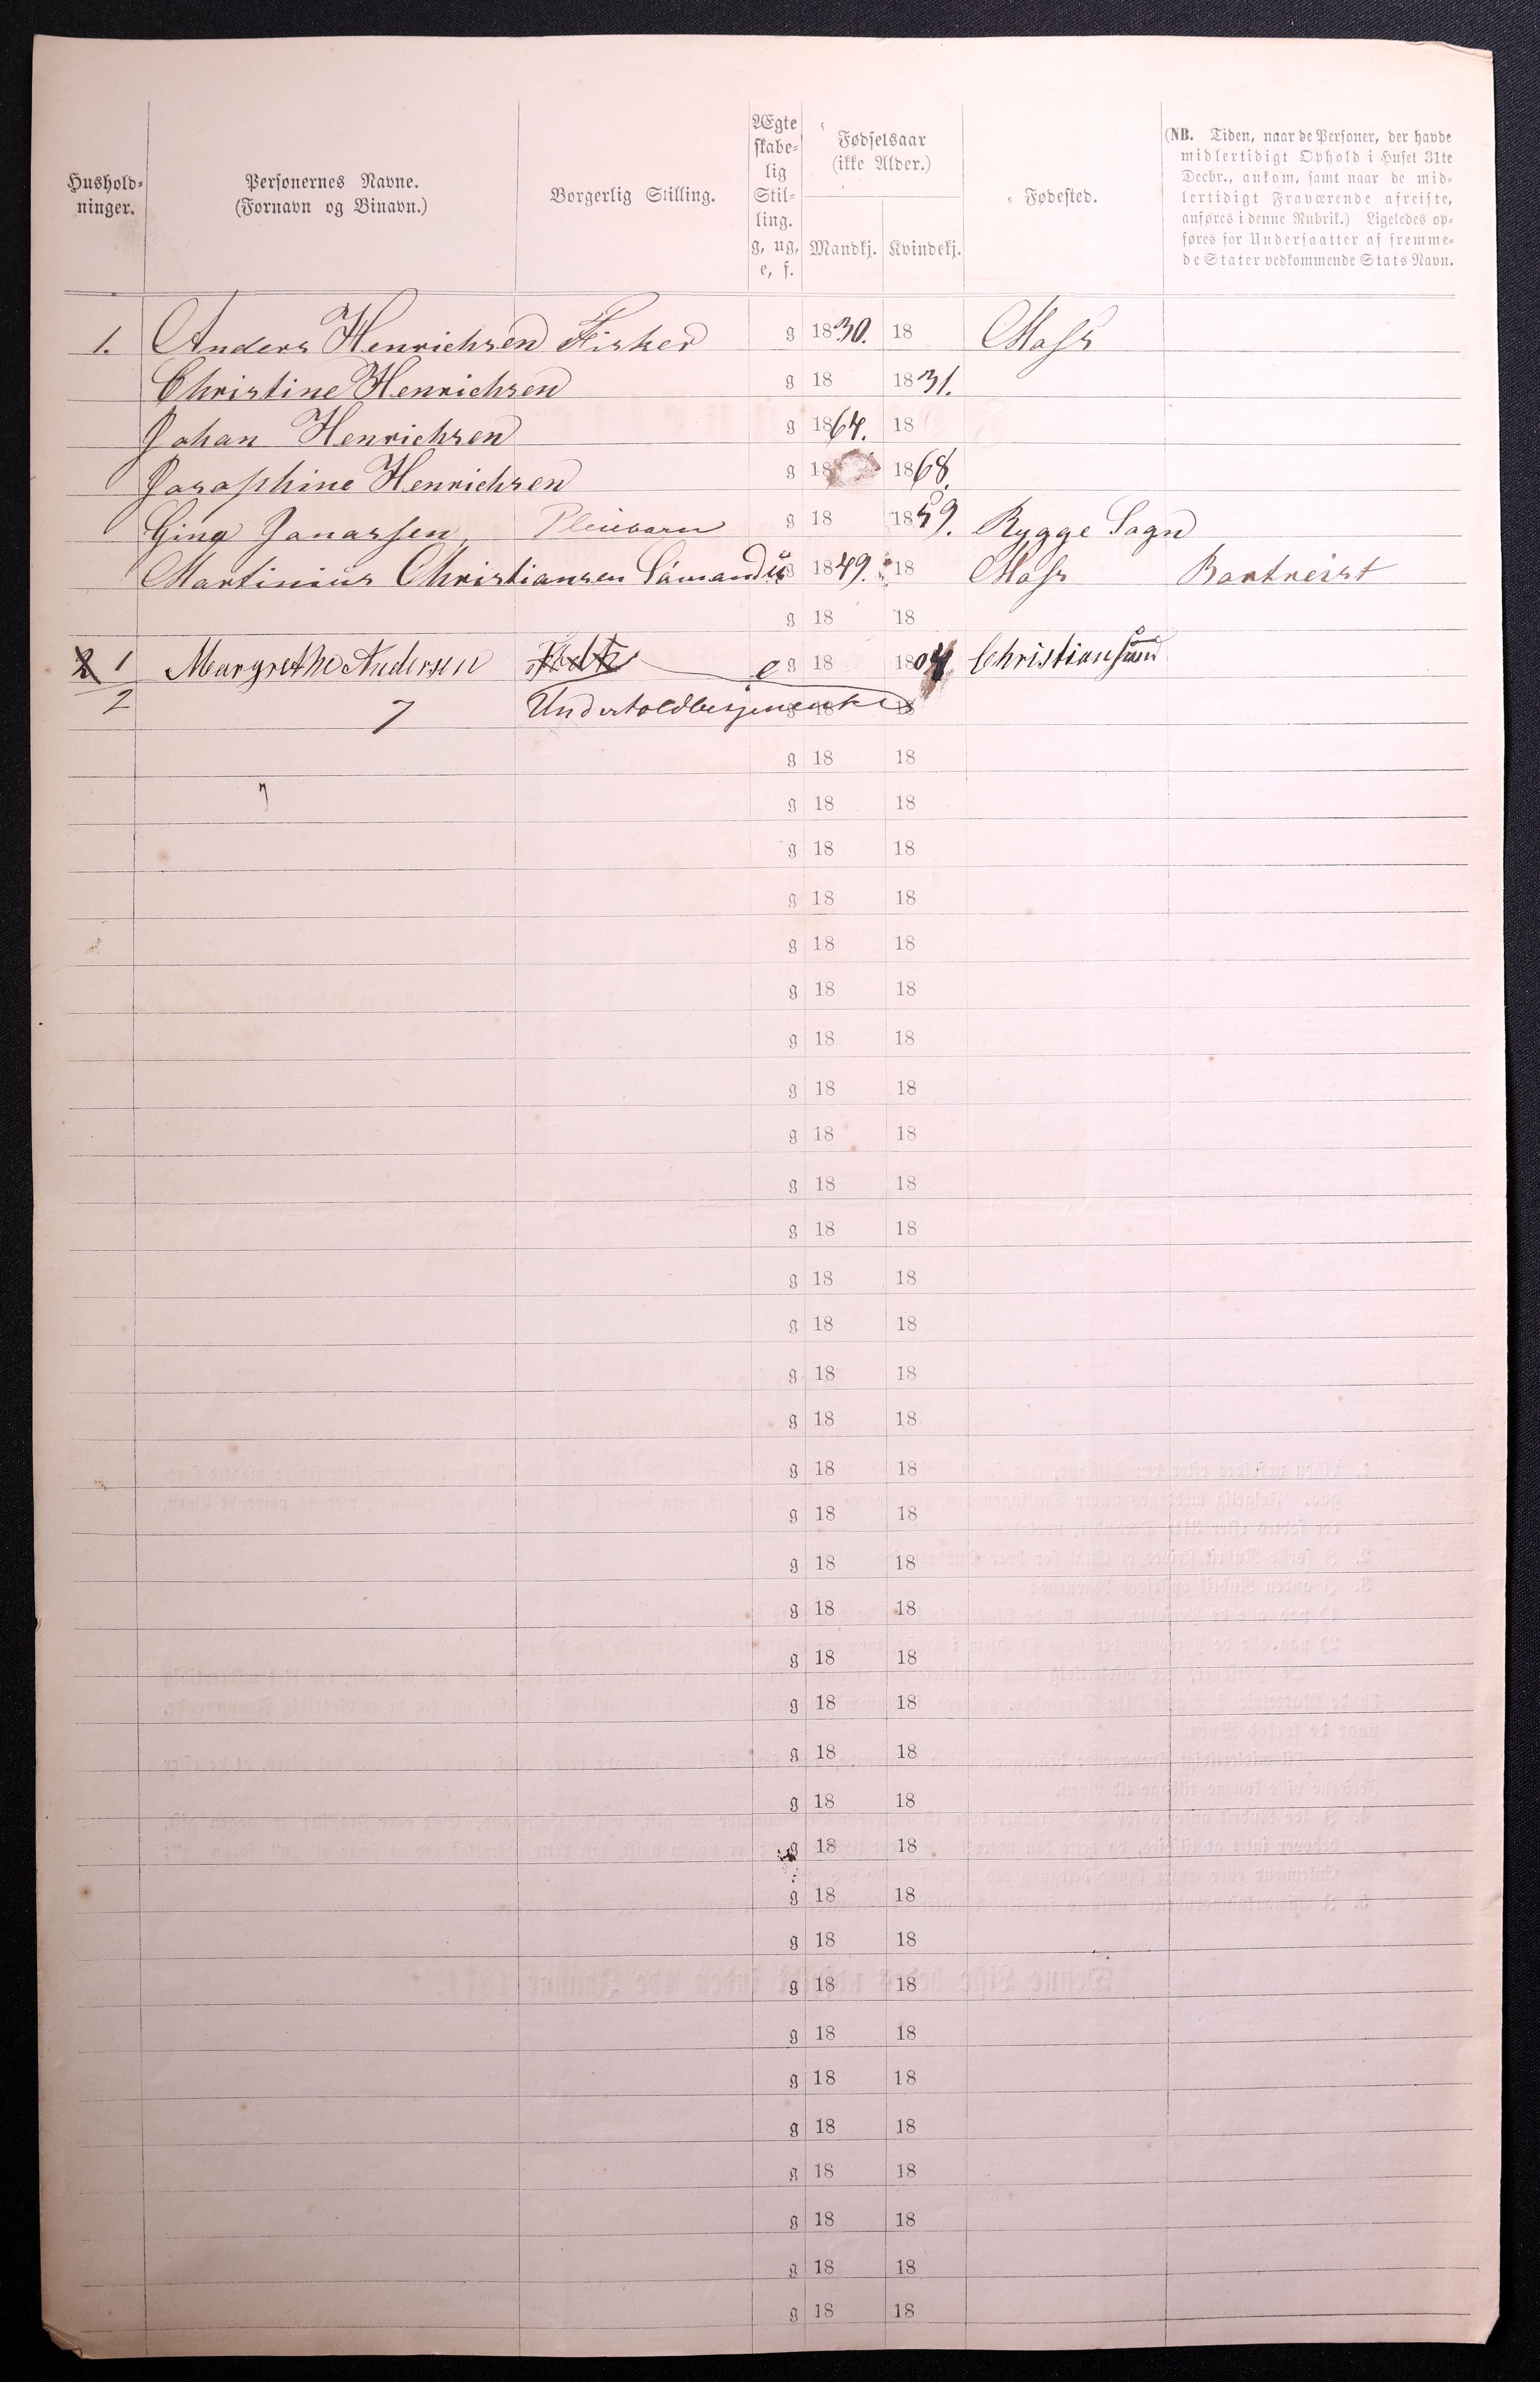 Hushold-
ninger.
Personernes Navne.
(Fornavn og Binavn.)
Borgerlig Stilling.
Ægte
skabe-
lig
Stil-
ling.
g, ug,
e, f.
Fødselsaar
(ikke Alder.)
Mandkj.
Kvindekj.
Fødested.
(NB. Tiden, naar de Personer, der havde
midlertidigt Ophold i Huset 31te
Decbr., ankom, samt naar de mid-
lertidigt Fraværende afreiste,
anføres i denne Rubrik.) Ligeledes op-
føres for Undersaatter af fremme-
de Stater vedkommende Stats Navn.
1. Anders Henrichsen Fisker g 1830. 18 Moss
Christine Henrichsen g 18 1831.
Johan Henrichsen g 1864. 18
Josephine Henrichsen g 18 1868.
Gina Jonassen Pleiebarn g 18 1859. Rygge Sogn
Martinius Christiansen Sömand u g 1849. 18 Moss Bortreist
g 18 18
2 1 Margrethe Andersen e g 18 1804 Christiansund
2 7 Undertoldbetjenenke g 18 18
g 18 18
g 18 18
g 18 18
g 18 18
g 18 18
g 18 18
g 18 18
g 18 18
g 18 18
g 18 18
g 18 18
g 18 18
g 18 18
g 18 18
g 18 18
g 18 18
g 18 18
g 18 18
g 18 18
g 18 18
g 18 18
g 18 18
g 18 18
g 18 18
g 18 18
g 18 18
g 18 18
g 18 18
g 18 18
g 18 18
g 18 18
g 18 18
g 18 18
g 18 18